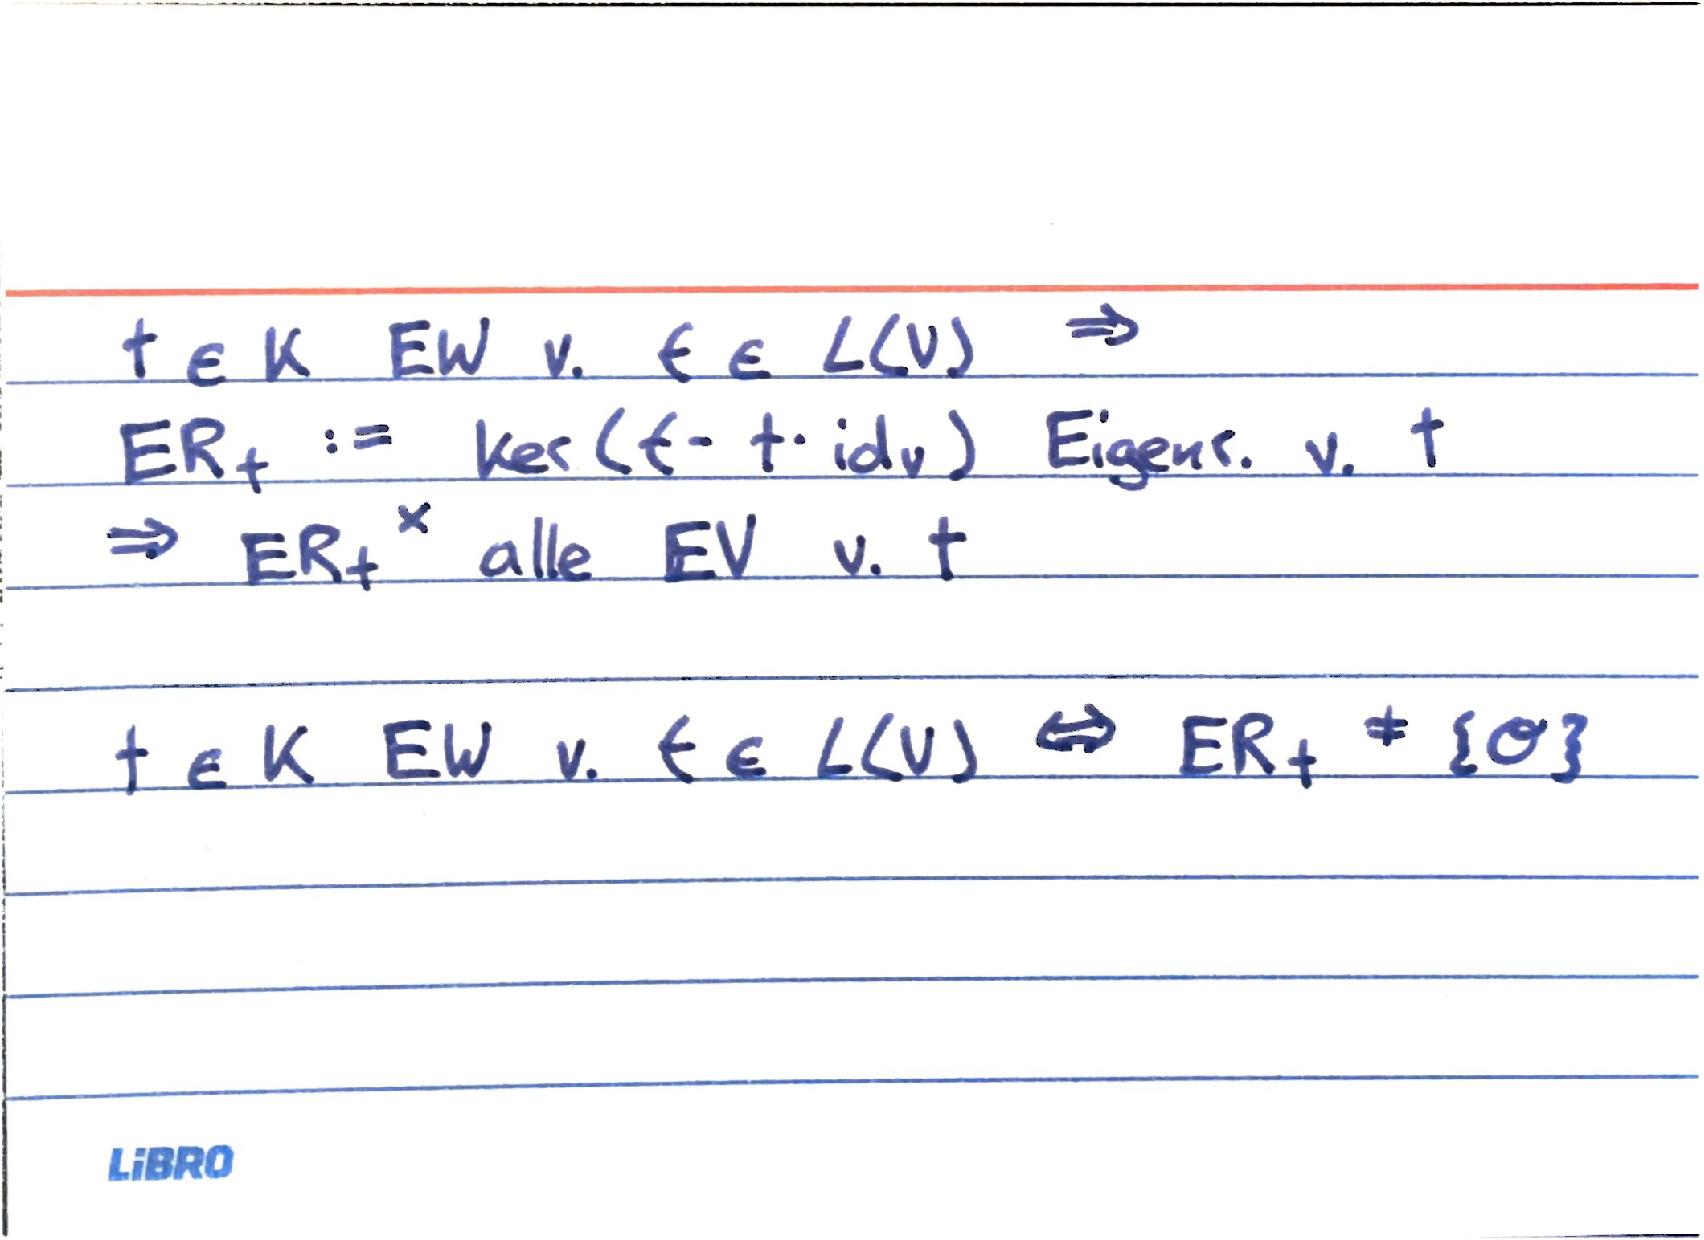 t ∈ K EW v. f ∈ L(V) ⇒
ER_t := ker(f - t · id_V) Eigenr. v. t
⇒ ER_t^× alle EV v. t
t ∈ K EW v. f ∈ L(V) ⇔ ER_t ≠ {O}
LiBRO